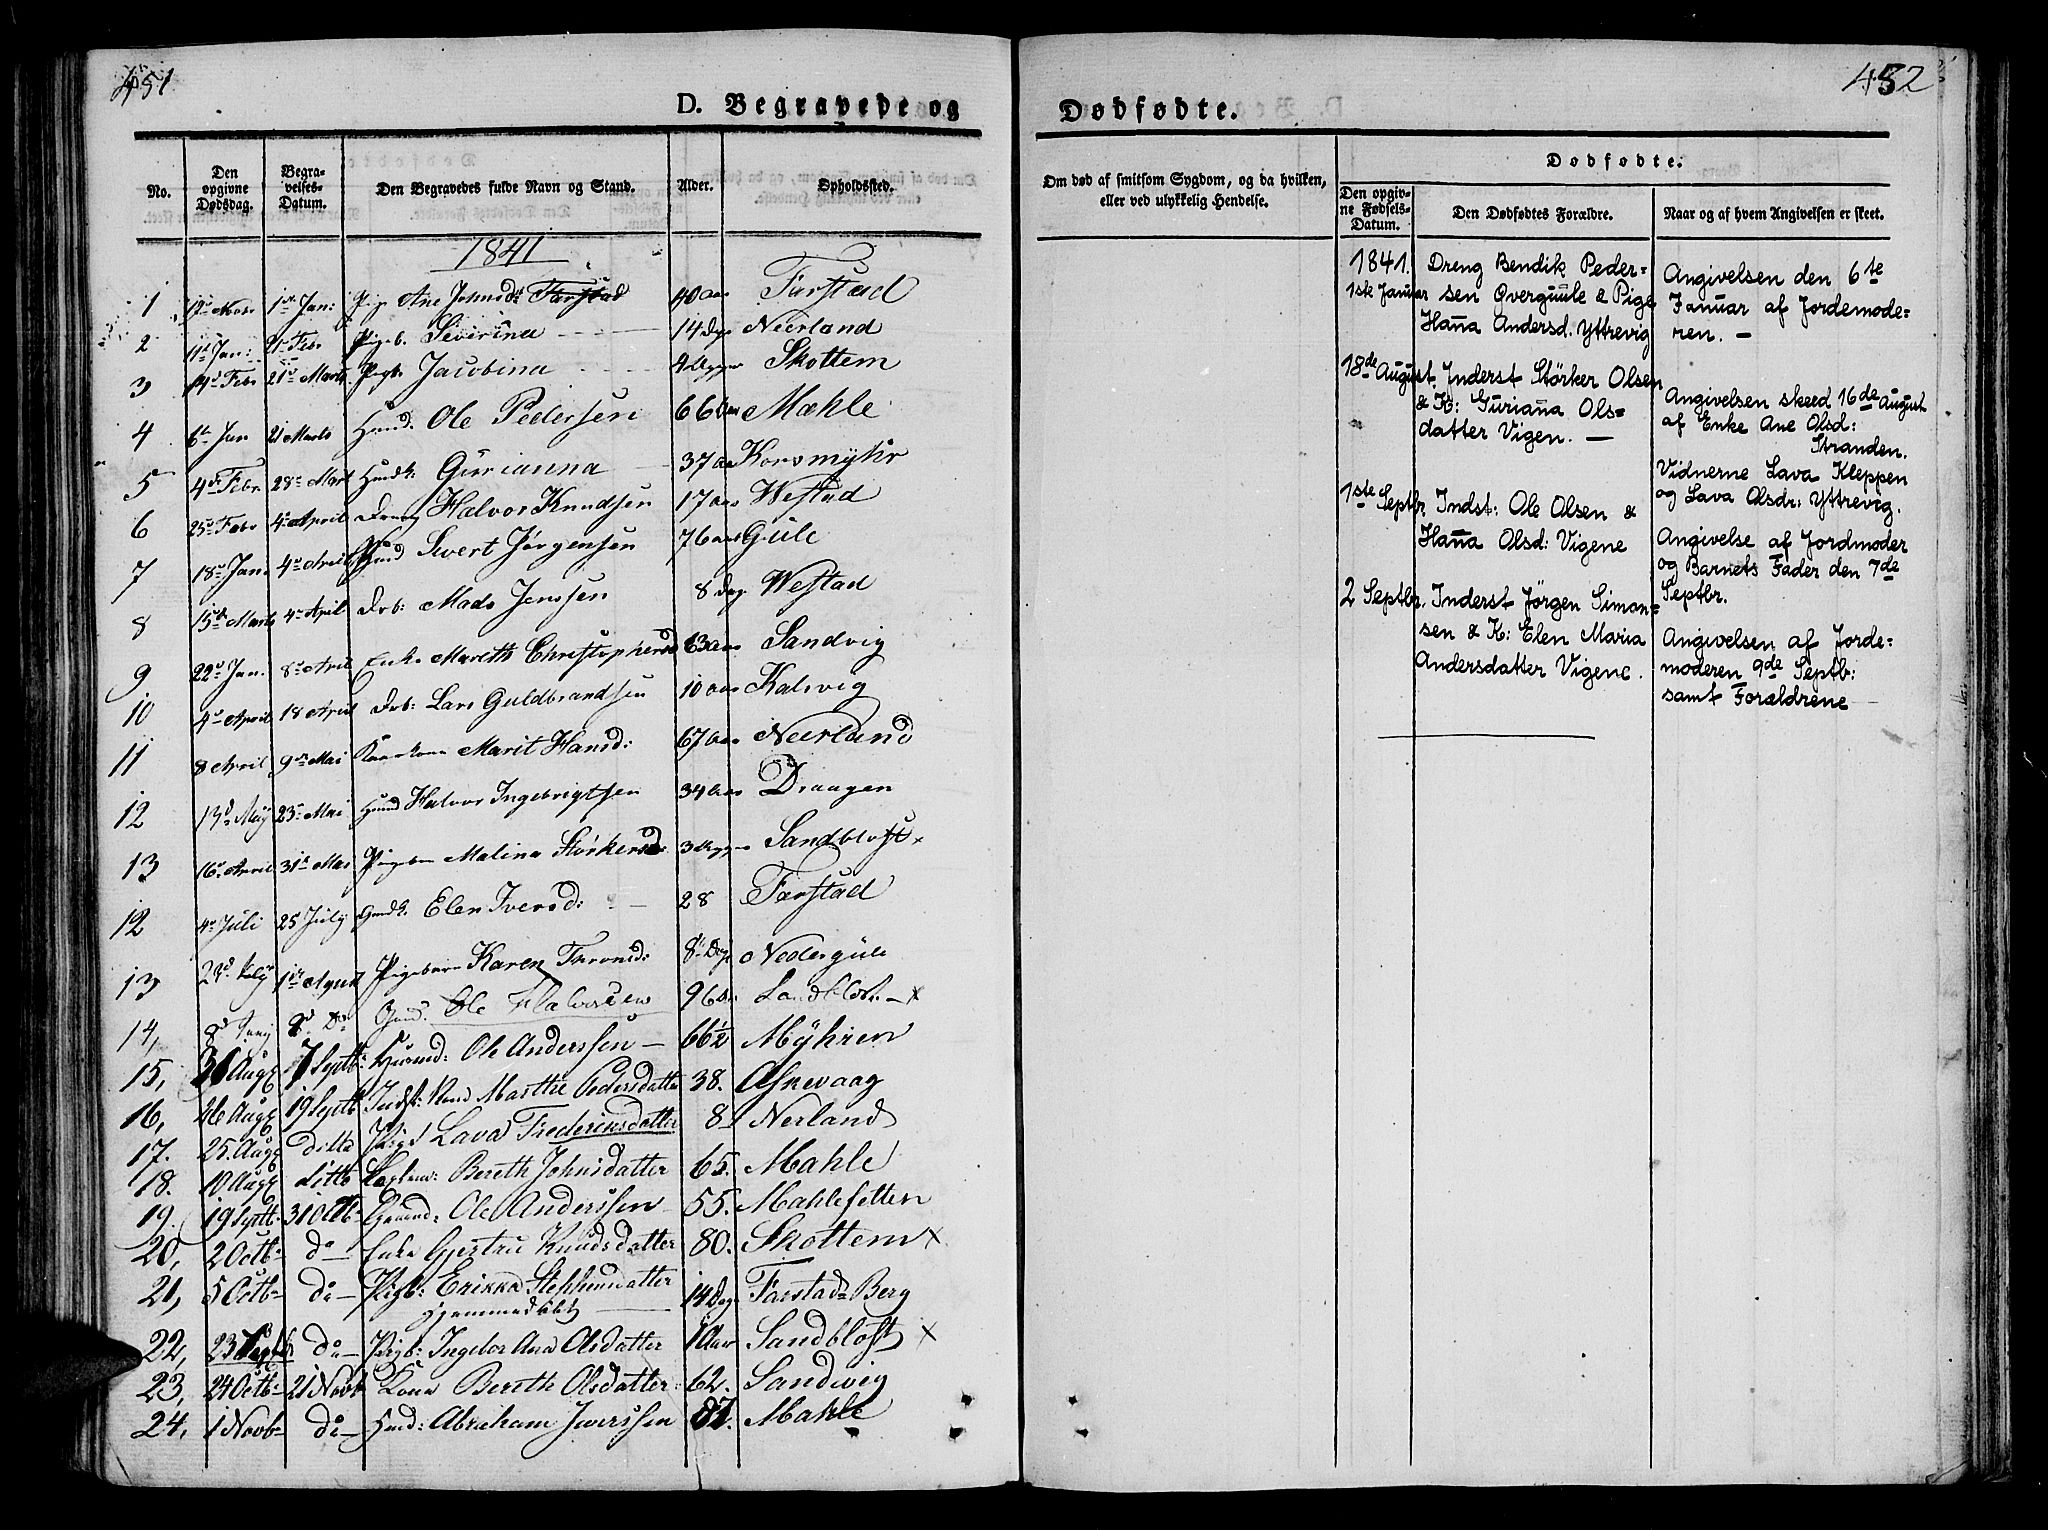 451
D. Begravede og
No. Den opgivne Dødsdag. Begravelses-Datum. Den Begravedes fulde Navn og Stand. Alder. Opholdssted.
1841
1 1ste Jan: Pige Ane Johnsdt: Farstad 40 Aar Farstad
2 11te Jan: Febr Pigeb. Severina 14 Dge Neerland
3 14de Febr 21de Marts Pigb. Jacobina 4 Skottem
4 6te Jan 21 Marts Huusd. Ole Pedersen 66 Aar Mæhle
5 4de Febr 28de Mart Huusk. Gurianna 37 Aar Korsmyhr
6 25de Febr 4de April Dreng Halvor Knudsen 17 Aar Westad
7 18de Jan. 4de April Huusd Sivert Jørgensen 76 Aar Gule
8 15de Marts 4de April Drb: Mads Jenssen 8 Dag Westad
9 22de Jan. 8de April Enke Mareth Christophersd 63 Aar Sandvig
10 4de April 18 April Drb: Lars Guldbrandsen 10 Aar Kalsvig
11 8 April 9de Mai Marit Hansd: 67 Aar Neerland
12 13de May 23de Mai Huusd Halvor Ingebrigtsen 34 Aar Draagen
13 16de April 31te Mai Pigebarn Malina Størkersd: 3 Sandbløst x
12 4de Juli 25 July Gmdk. Elen Iversd: 28 Farstad
13 23de July 1ste August Pigebarn Karen Thronsd: 8 Dge Nedergule
14, 8de Juny 8de Do Gmd. Ole Halvorsen 96 Aar Sandbløst x
15, 31 Aug 7 Septb: Huusmd: Ole Anderssen 66½ Myhren
16, 26 Aug 19 Septb Indst: Kone Marthe Pedersdatter 38. Asnevaag
17. 25. Aug ditto Pige Lava Fredericsdatter 8 Nerland
18. 10 Aug ditto Bereth Johnsdatter 65. Mahle
19. 19 Septb. 31 Octb Gaardmd: Ole Anderssen 55. Mahlesetten
20, 2 Octb do Enke Gjertru Knudsdatter 80. Skottem x
21, 5 Octb do Pigb: Erikka Stephensdatter 14 Dage Farstad Berg
hjemmedøbt
22, 23 Septb do Pigb: Ingebor Ana Olsdatter 1 Aar Sandbløst x
23, 24 Octb 21 Novb Kone Bereth Olsdatter 62. Sandwig
24, 1 Novb do Huusd: Abraham Iverssen 87. Mahle
452
Dødfødte.
Om død af smitsom Sygdom, og da hvilken,
eller ved ulykkelig Hendelse.
Dødfødte.
Den opgivne Fødsels-Datum. Den Dødfødtes Forældre. Naar og af hvem Angivelsen er skeet.
1841. Dreng Bendik Peder-
1ste Januar sen Øvergule & Pige
Hana Andersd. Yttrevig
Angivelsen den 6te
Januar af Jordemode-
ren. —
18de August. Inderst Størker Olsen
& K: Guriana Ols-
datter Vigen. —
Angivelsen skeed 16de August
af Enke Ane Olsd:
Stranden.
Vidnerne Lava Kleppen
og Lava Olsdr: Yttrevig.
1ste Septbr. Indst: Ole Olsen &
Hana Olsd: Vigene
Angivelse af Jordmoder
og Barnets Fader den 7de
Septbr.
2 Septbr. Inderst Jörgen Simon-
sen & K: Elen Maria
Andersdatter Vigene.
Angivelsen af Jorde-
moderen 9de Septb:
samt Foraldrene